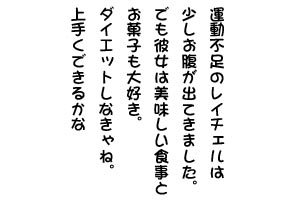 運動不足のレイチェルは
少しお腹が出てきました。
でも彼女は美味しい食事と
お菓子も大好き。
ダイエットしなきゃね。
上手くできるかな